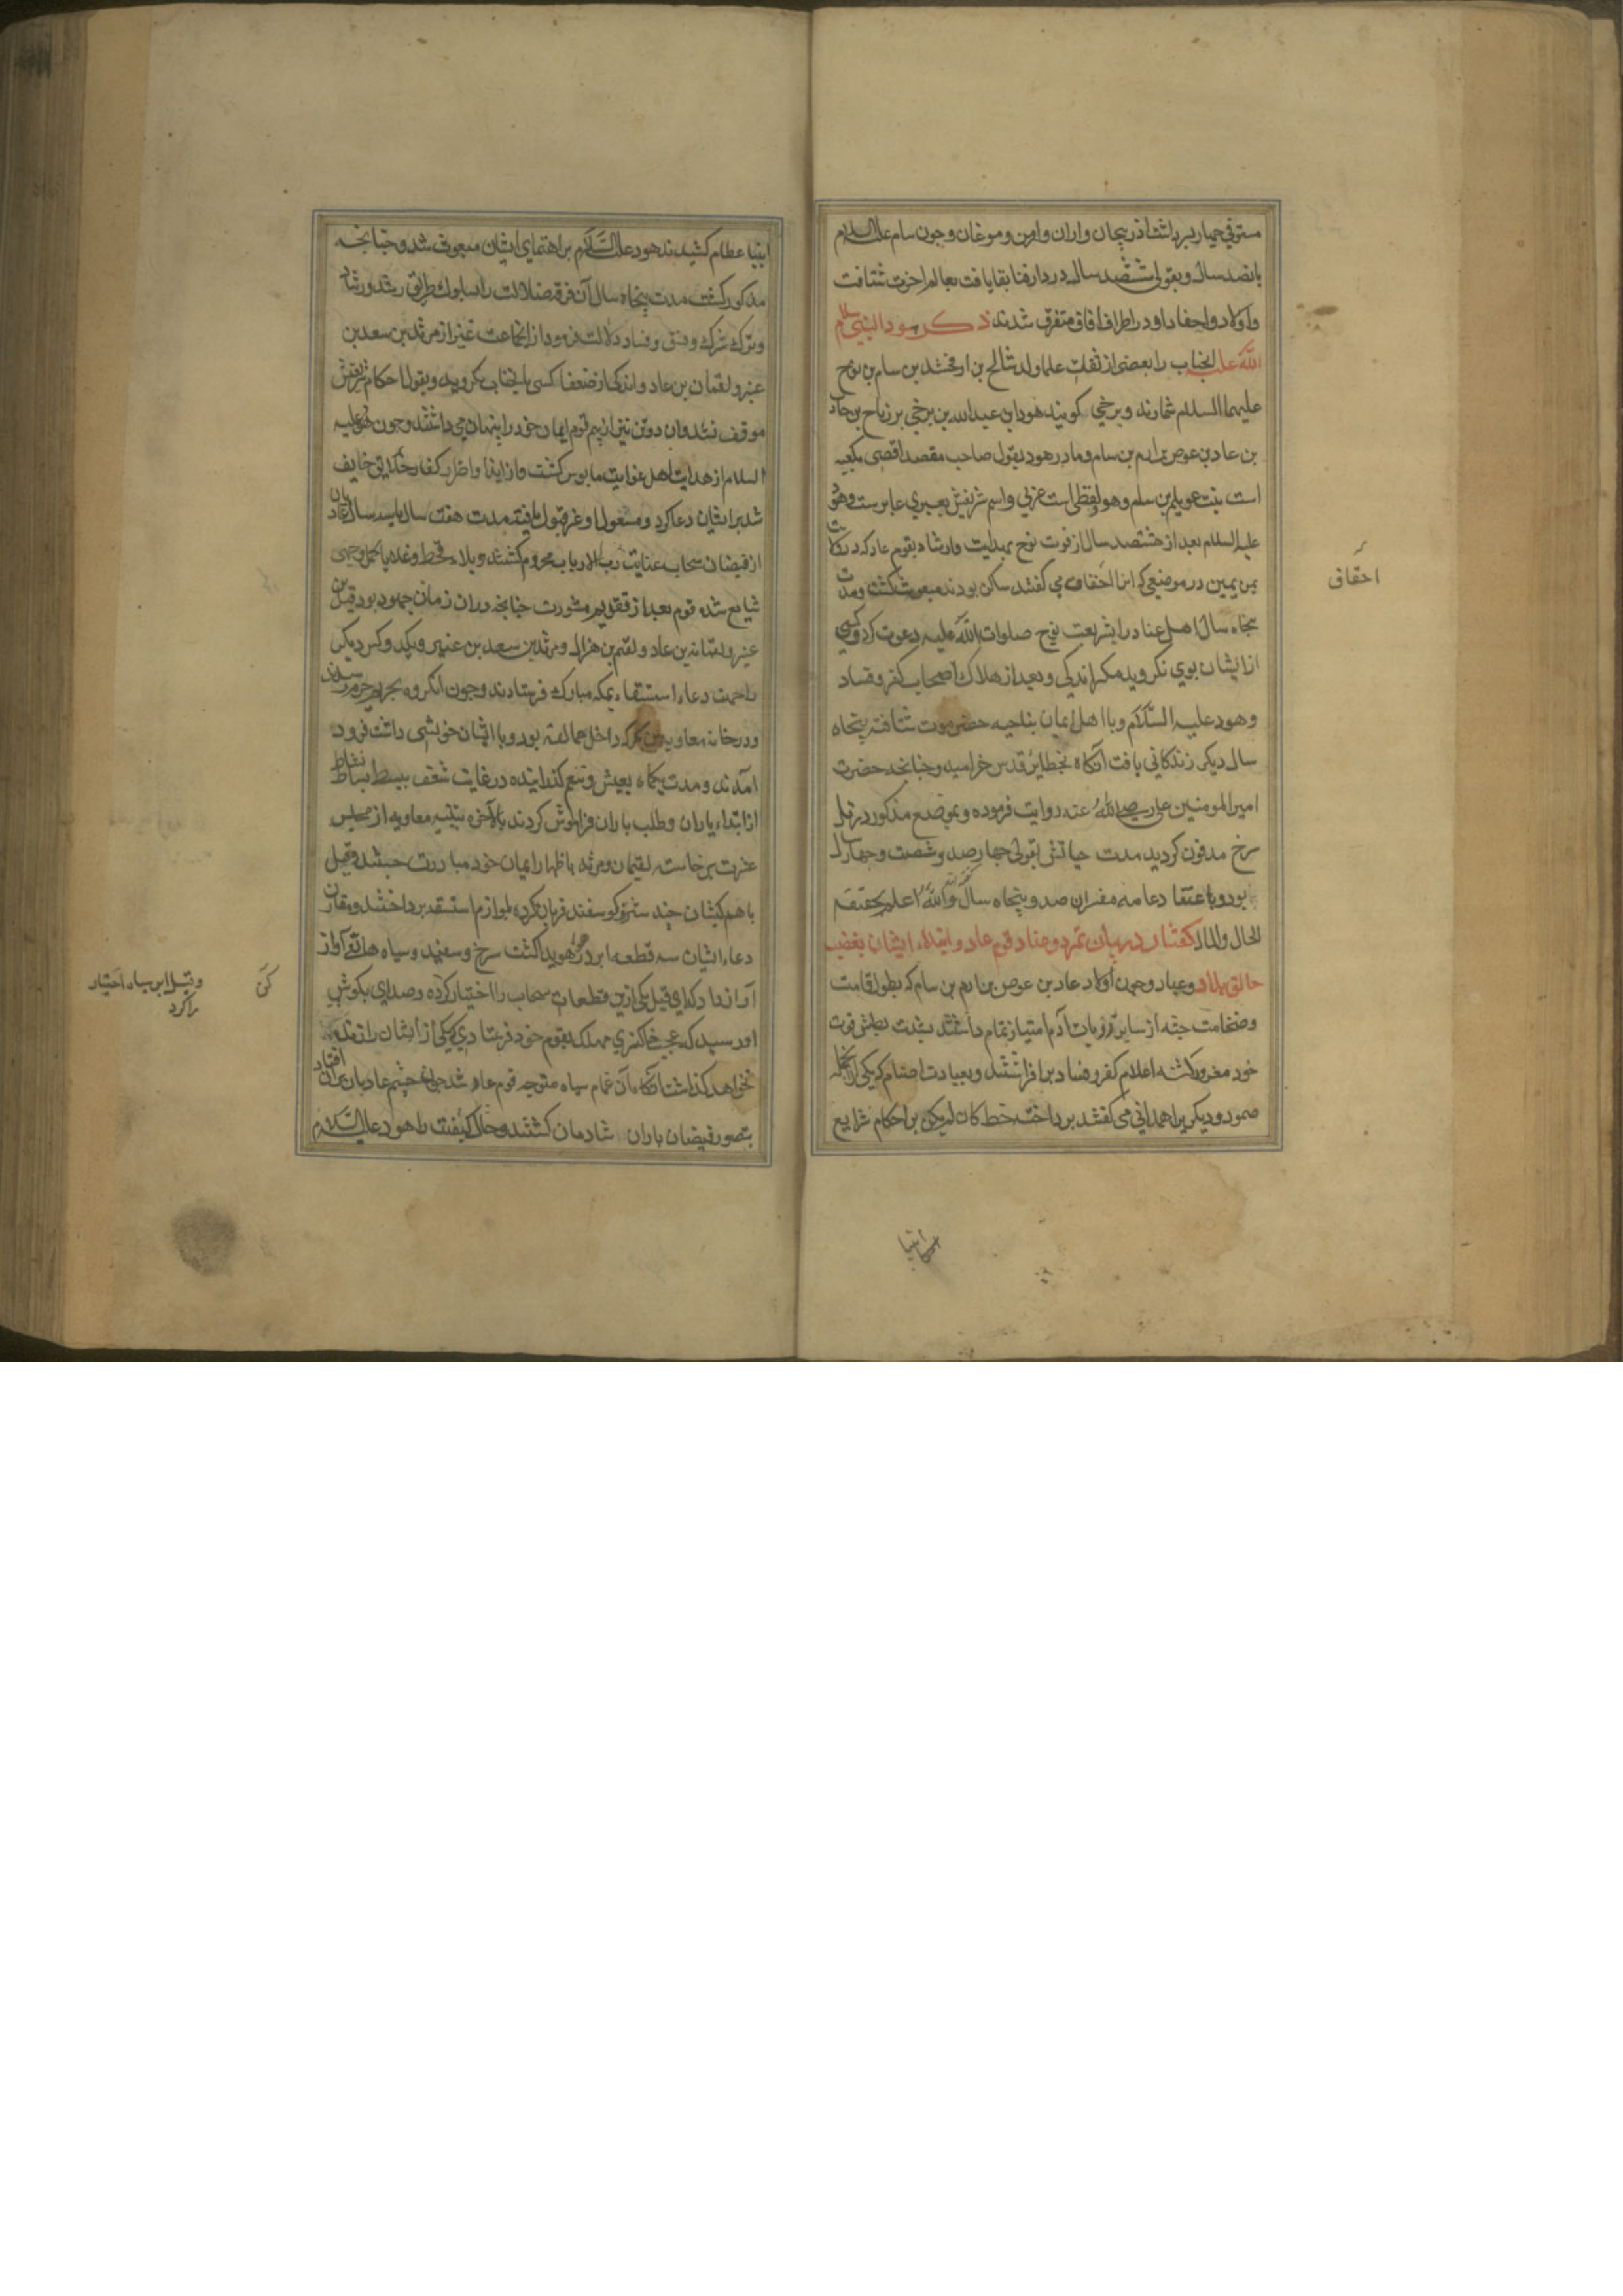 مستوفی چهار پسر داشت اذربیجان و اران و ارمن و موغان و چون سام علیه السلام
پانصد سال و بقولی ششصد سال در دار فنا بقا یافت بعالم اخرت شتافت
و اولاد و احفاد او در اطراف افاق متفرق شدند ذکر هود النبی سلام
الله علیه انجناب را بعضی از ثقات علما ولد شالح بن ارفخشد بن سام بن نوح
علیهما السلام شمارند و برخی کویند هود بن عبد الله بن رباح بن
بن عاد بن عوص بن ارم بن سام و مادر هود بقول صاحب مقصد اقصی بکعبه
است بنت عویلم بن سام و هود لفظی است عربی و اسم شریفش بعبری عابر ست و هود
علیه السلام بعد از هشتصد سال از فوت نوح بهدایت و ارشاد بقوم عاد که در
یمن یمین در موضعی که انرا احقاف می کفتند ساکن بودند مبعوث کشت و مدت
پنجاه سال اهل عناد را بشریعت نوح صلوات الله علیه دعوت کرد و کسی
از ایشان بوی نکروید مکر اندکی و بعد از هلاک اصحاب کفر و فساد
و هود علیه السلام و با اهل ایمان بناحیه حضرموت شتافته پنجاه
سال دیکر زندکانی یافت آنکاه بحظایر قدس خرامید و چنانچه حضرت
امیر المومنین علی رضی الله عنه روایت فرموده و بموضع مذکور در تل
سرخ مدفون کردید مدت حیاتش بقولی چهار صد و شصت و چهار سال
بود و باعتقاد عامه مفسران صد و پنجاه سال و الله اعلم بحقیقة
الحال و المال کفتار در بیان تمرد و عناد قوم عاد و ابتلاء ایشان بغضب
خالق بلاد و عباد و چون اولاد عاد بن عوص بن ارم بن سام که بطول قامت
و ضخامت جثه از سایر ذریات آدم امتیاز تمام داشتند بشدت بطش قوت
خود مغرور کشته اعلام کفر و فساد بر افراشتند و بعبادت اصنام که یکی از انجمله
صمود و دیکریرا همدانی می کفتند برداخته خط بر احکام شرایع
احقاف
انبیا
انبیا عظام کشیدند هود علیه السلام براهنمای ایشان مبعوث شد و چنانچه
مذکور کشت مدت پنجاه سال آن فرقه ضلالت را بسلوک طریق رشد و رشاد
و ترک شرک و فسق و فساد دلالت فرمود از انجماعت غیر از مرثد بن سعد بن
عفیر و لقمان بن عاد و اندکی از ضعفا کسی بانجناب نکروید و بقول احکام شریعتش
موقف نشد و ان دو تن نیز از بیم قوم ایمان خود را پنهان می داشتند و چون هود علیه
السلام از هدایت اهل غوایت مایوس کشت و از ایذا و اضرار کفار خلایق خایف
شد بر ایشان دعا کرد و مسئول او عز قبول یافته مدت هفت سال یا سه سال عادیان
از فیضان سحاب عنایت رب الارباب محروم کشتند و بلاء قحط و غلا باکمل وجهی
شایع شده قوم بعد از تقدیم مشورت چنانچه در ان زمان جمهود بود قیل بن
عنیر و لقمان بن عاد و لقیم بن هزال و مرثد بن سعد بن عفیر و یکد و کس دیکر
را جهت دعاء استسقاء بمکه مبارک فرستادند و چون انکروه بحریم حرم رسیدند
و در خانه معاویه بن بکر که داخل عمالقه بود و با ایشان خویشی داشت فرود
آمدند و مدت یکماه بعیش و تنعم کذرانیده در غایت شغف ببسط بساط نشاط
از ابتداء یاران و طلب باران فراموش کردند بالآخره بتنبیه معاویه از مجلس
عزت برخاسته لقیمان و مرثد باظهار ایمان خود مبادرت جستند و قیل
با هم کیشان چند شتر و کوسفند قربان کرده بلوازم استسقا برداختند و مقارن
دعاء ایشان سه قطعه ابر در هوا هویدا کشت سرخ و سفید و سیاه هاتفی آواز
آواز داد که ای قیل یکی ازین قطعات سحاب را اختیار کرده و صدای بکوش
او رسید که عجب خاکستری مهلک بقوم خود فرستادی که یکی از ایشان را زنده
نخواهد کذاشت آنکاه آن غمام سیاه متوجه قوم عاد شد چون چشم عادیان بران افتاد
بتصور فیضان باران شادمان کشتند و حال کیفیت را هود علیه السلام
کن
و قیل ابر سیاه اختیار
را کرد